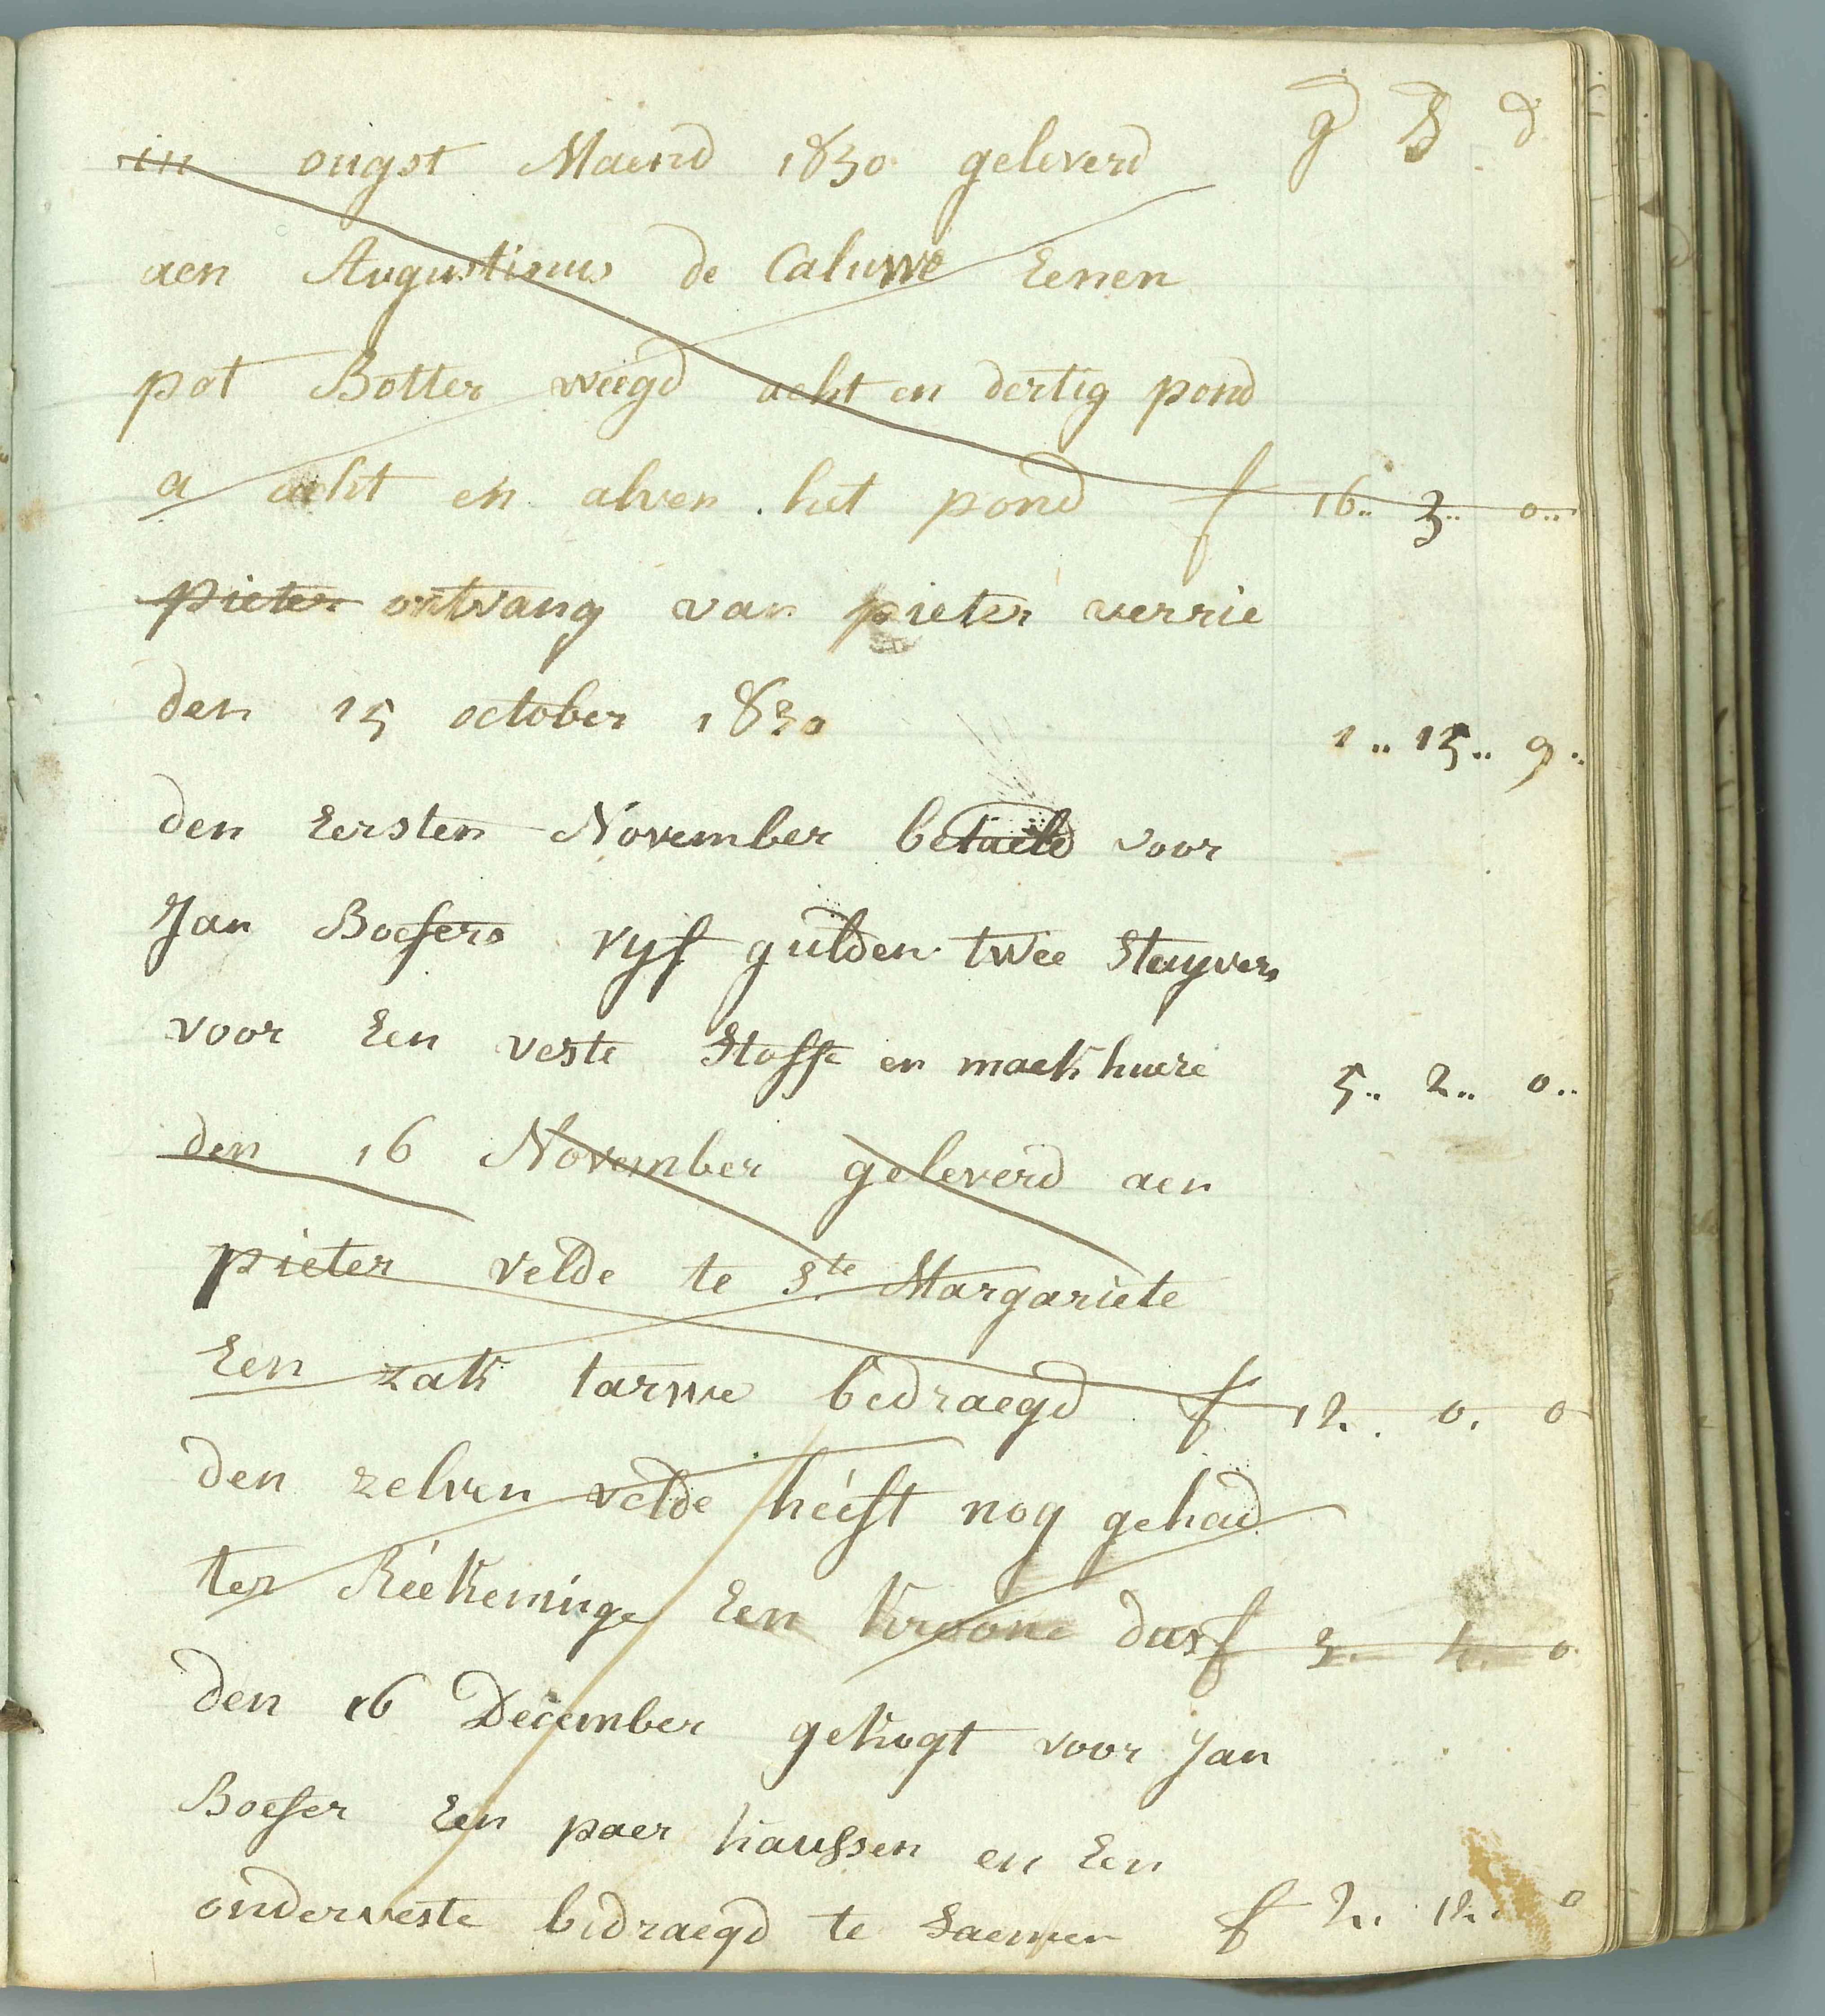 g S d
in ougst Maend 1830 geleverd
aen Augustinus de Caluwe Eenen
pot Botter weegd acht en dertig pond
a acht en alven het pond f 16.. 3.. 0..
pieter ontvang van pieter verrie
den 15 october 1830 1.. 15.. 9..
den Eersten November betaeld voor
Jan Boesers vyf gulden twee stuyvers
voor Een veste Stoffe en maekhuere 5.. 2.. 0..
den 16 November geleverd aen
pieter velde te Ste Margariete
Een zak tarwe bedraegd f 12.. 0. 0
den zelven velde héeft nog gehad
ter Réekeninge Een kroone dus f 3.. 4.. 0.
den 16 December gekogt voor Jan
Boeser Een paer kaussen en Een
onderveste bedraegd te saemen f 2.. 12.. 0